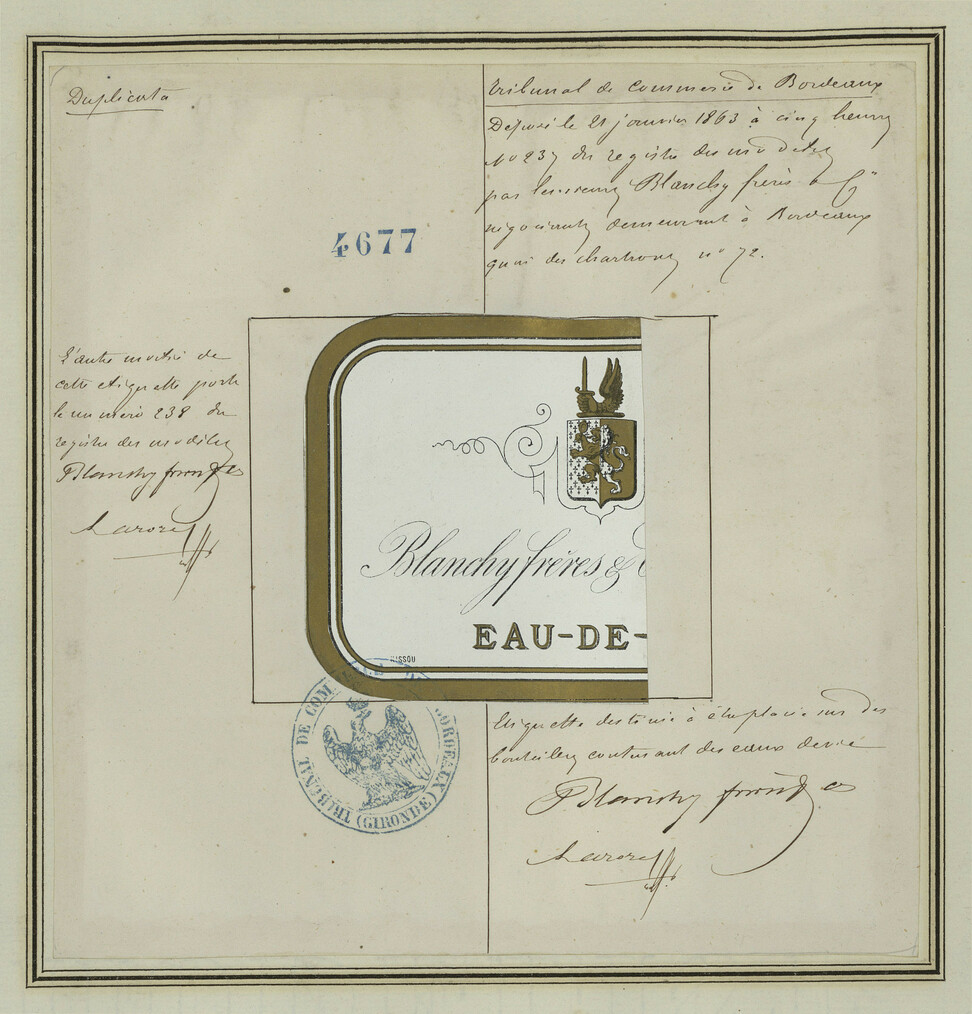 Duplicata
Tribunal de Commerce de Bordeaux
Déposé le 21 janvier 1863 à cinq heures
No 237 du registre des modèles
par les sieurs Blanchy frères & Cie
négociants demeurant à Bordeaux
quai des chartrons no 72.
4677
L'autre moitié de
cette etiquette porte
le numéro 238 du
registre des modèles
Blanchy frères & Co
Blanchy frères &
EAU-DE-
NISSOU
TRIBUNAL DE COMMERCE DE BORDEAUX
(GIRONDE)
Etiquette destinée à être placée sur des
bouteilles contenant des eaux de vie
Blanchy frères & Co